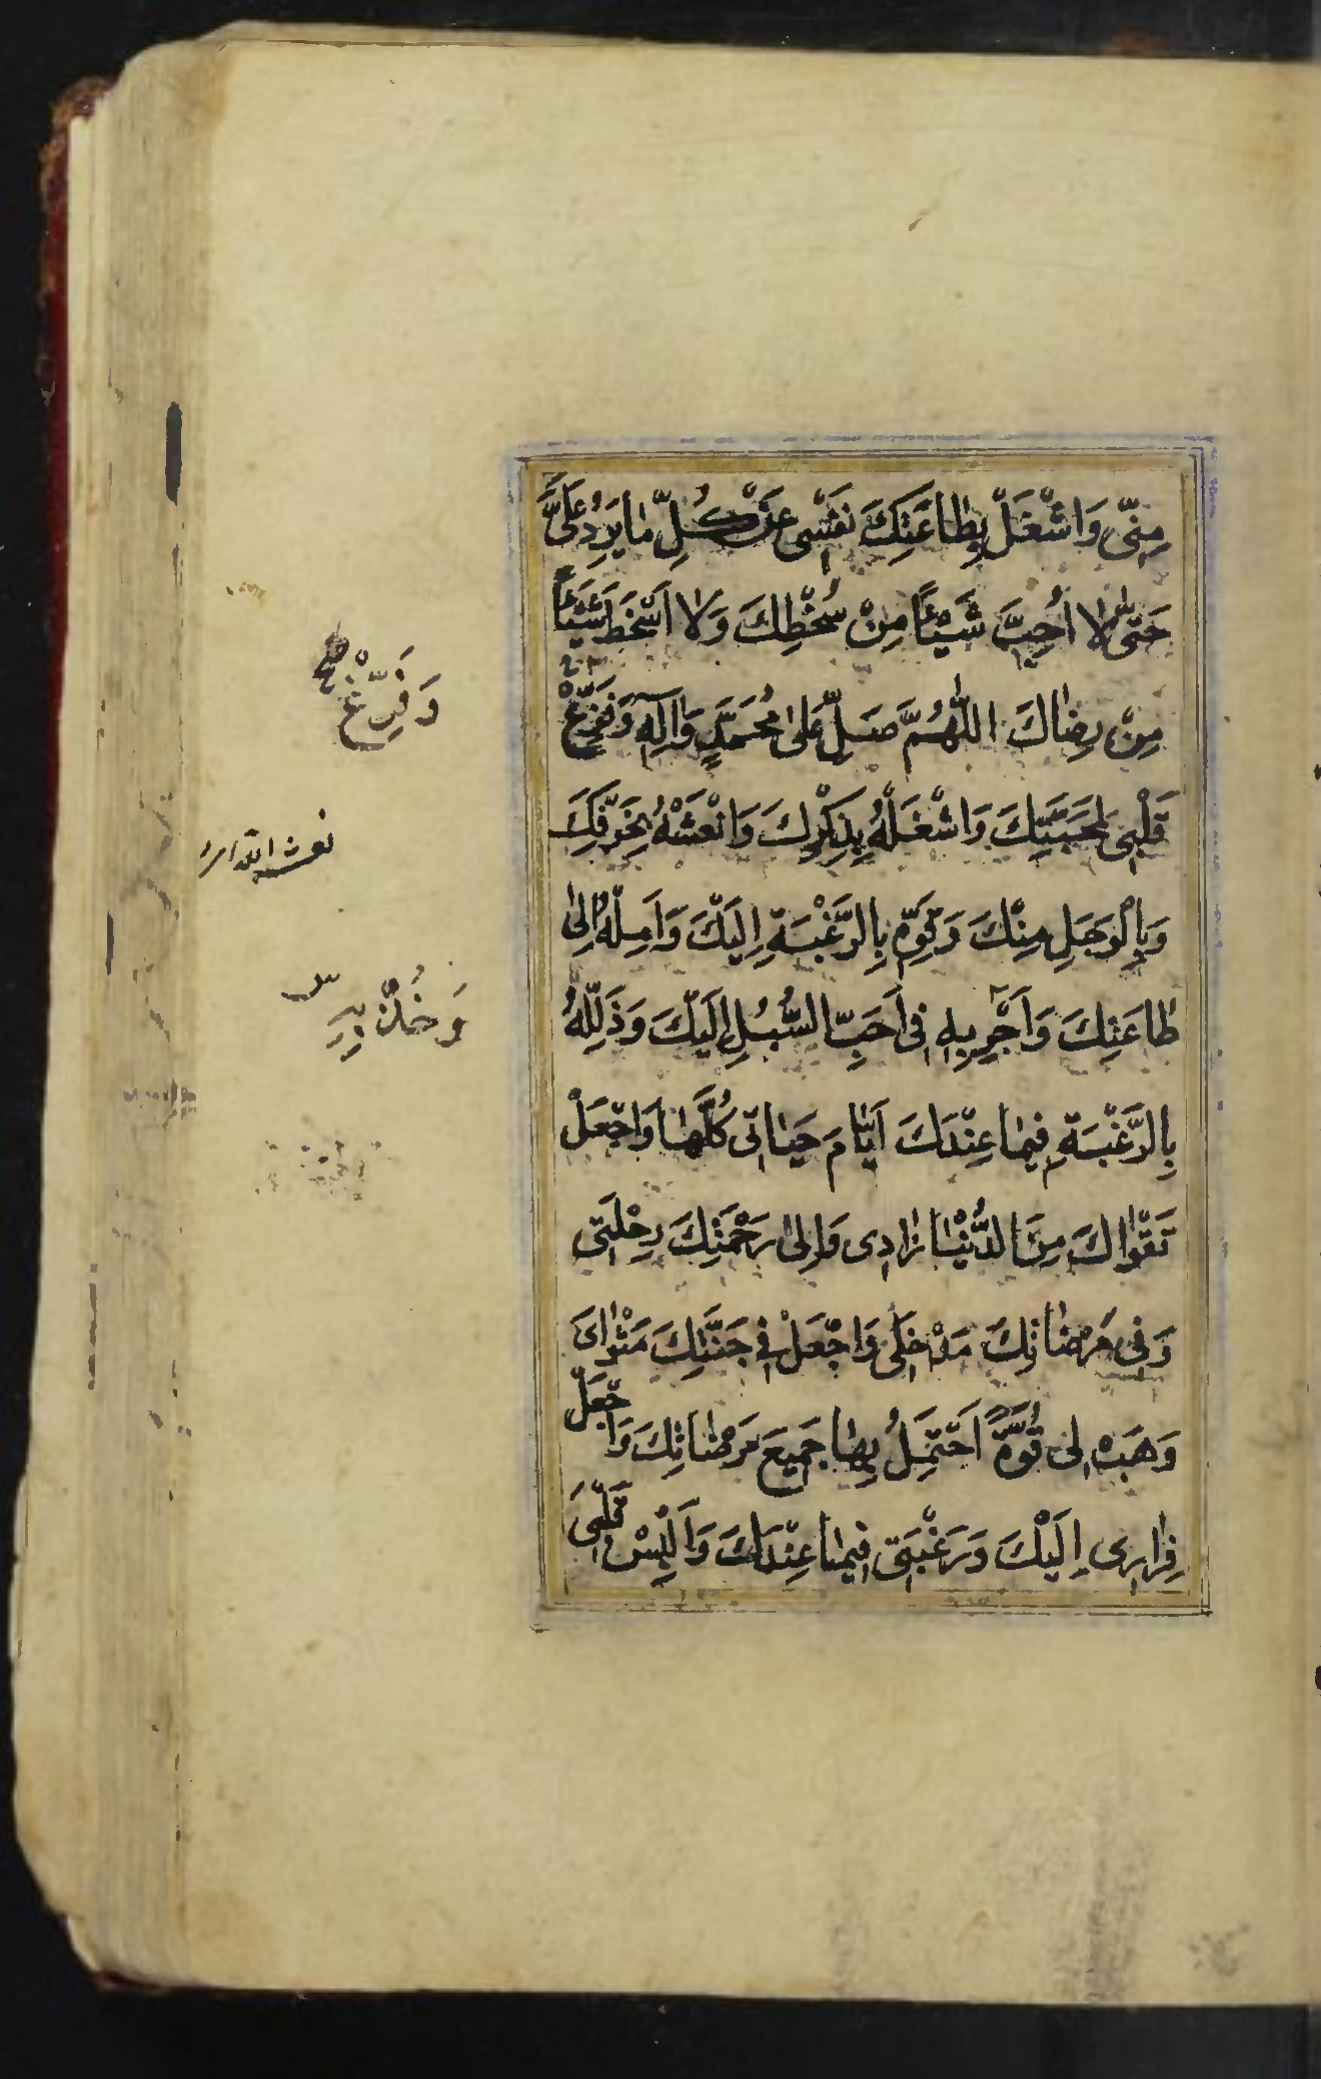 مِنّى وَاشْغَلْ بِطاعَتِكَ نَفْسى عَنْ كُلِّ ما يَرِدُ عَلَىَّ
حَتّى لا اُحِبَّ شَيْئًا مِنْ سُخْطِكَ وَلا اَسْخَطَ شَيْئًا
مِنْ رِضاكَ اللّهُمَّ صَلِّ عَلى مُحَمَّدٍ وَآلِهِ وَفَرِّغْ
قَلْبى لِمَحَبَّتِكَ وَاشْغَلْهُ بِذِكْرِكَ وَانْعَشْهُ بِخَوْفِكَ
وَبِالْوَجَلِ مِنْكَ وَقَوِّهِ بِالرَّغْبَةِ اِلَيْكَ وَاَمِلْهُ اِلى
طاعَتِكَ وَاَجْرِ بِهِ فى اَحَبِّ السُّبُلِ اِلَيْكَ وَذَلِّلْهُ
بِالرَّغْبَةِ فيما عِنْدَكَ اَيّامَ حَياتى كُلَّها وَاجْعَلْ
تَقْواكَ مِنَ الدُّنْيا زادى وَاِلى رَحْمَتِكَ رِحْلَتى
وَفى مَرْضاتِكَ مَدْخَلى وَاجْعَلْ فى جَنَّتِكَ مَثْواىَ
وَهَبْ لى قُوَّةً اَحْتَمِلُ بِها جَميعَ مَرْضاتِكَ وَاجْعَلْ
فِرارى اِلَيْكَ وَرَغْبَتى فيما عِنْدَكَ وَاَلْبِسْ قَلْبىَ
وَفَرِّغْ
نعشه الله